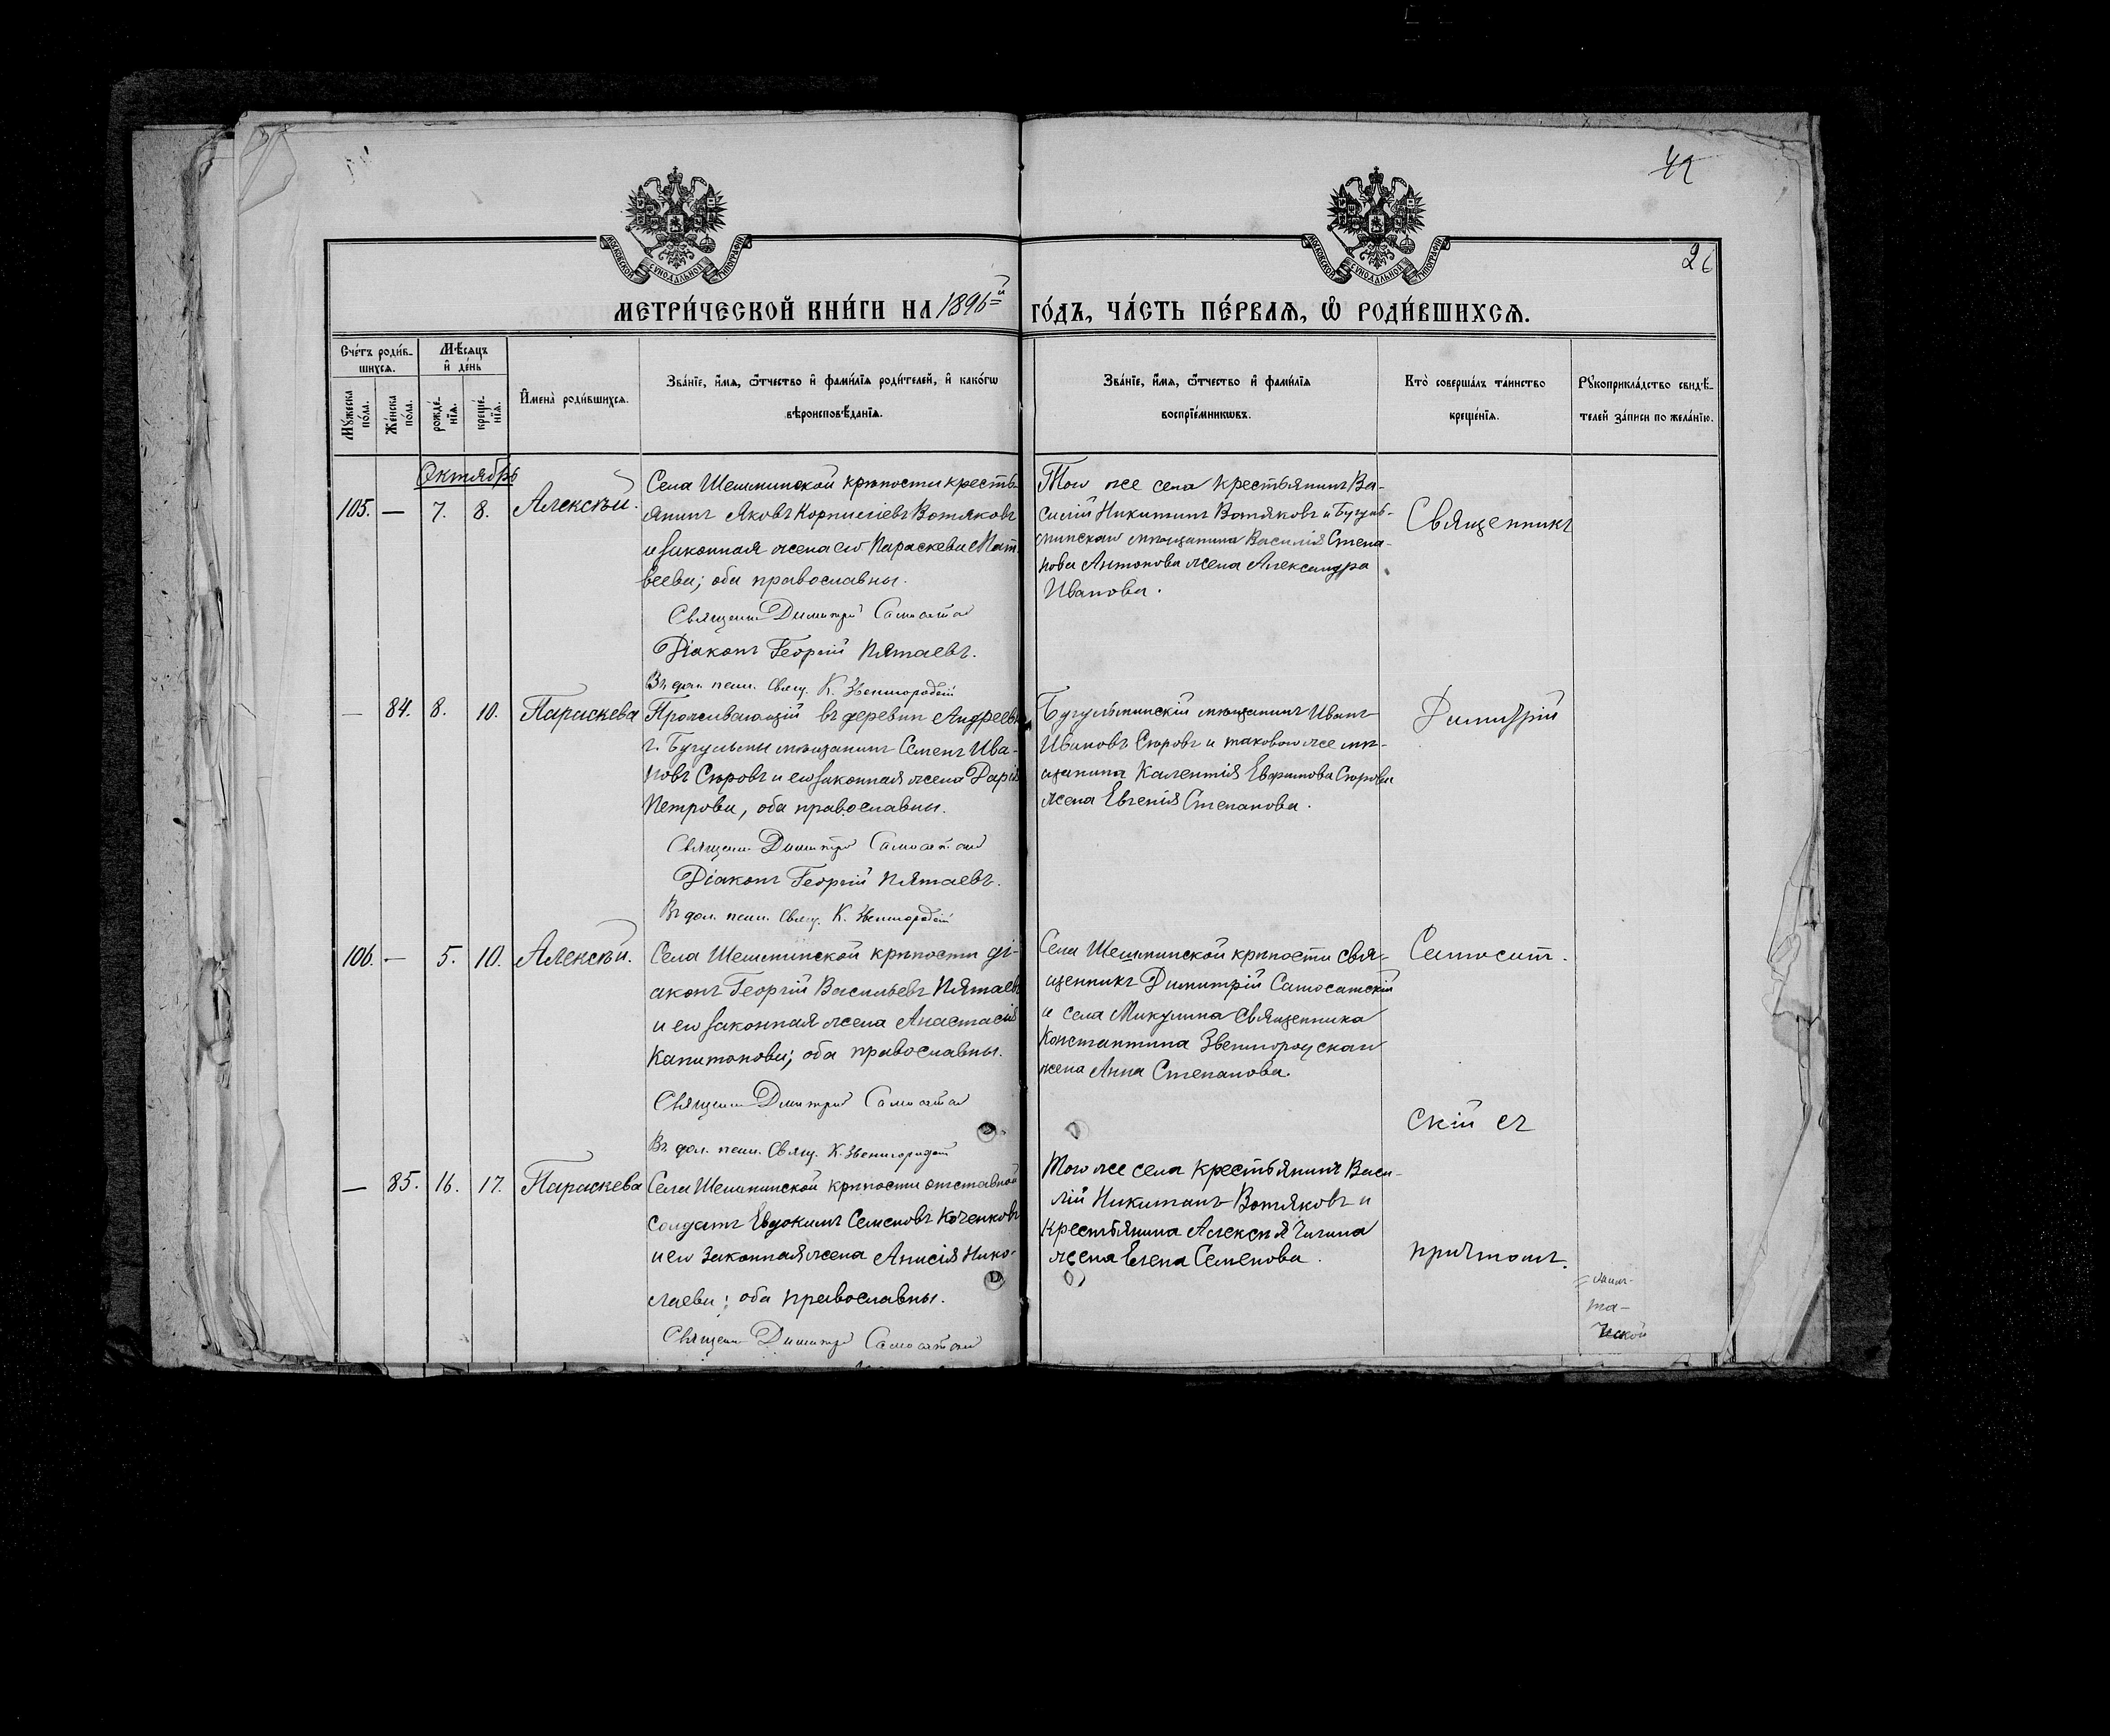 42
26
МОСКОВСКОЙ СѴНОДАЛЬНОЙ ТИПОГРАФІИ
МОСКОВСКОЙ СѴНОДАЛЬНОЙ ТИПОГРАФІИ
МЕТРИ́ЧЕСКОЙ КНИ́ГИ НА 1896=й
ГО́ДЪ, ЧА́СТЬ ПЕ́РВАѦ, Ѡ҆ РОДИ́ВШИХСѦ.
Сче́тъ роди́в-
шихсѧ.
Мѣ́сѧцъ
и҆ де́нь
Мꙋ́жеска
по́ла.
Же́нска
по́ла.
рожде́-
нїѧ.
креще́-
нїѧ.
И҆мена̀ роди́вшихсѧ.
Зва́нїе, и҆́мѧ, ѻ҆́тчество и҆ фами́лїѧ роди́телей, и҆ како́гѡ
вѣроисповѣ́данїѧ.
Зва́нїе, и҆́мѧ, ѻ҆́тчество и҆ фами́лїѧ
воспрїе́мникѡвъ.
Кто̀ соверша́лъ та́инство
креще́нїѧ.
Рꙋкоприкла́дство свидѣ́-
телей за́писи по жела́нїю.
Октябрь
105. — 7. 8. Алексѣй.
Села Шешминской крѣпости кресть-
янинъ Яковъ Корниліевъ Вотяковъ
и законная жена его Параскева Мат-
веева; оба православны.
Священ Димитрій
Діаконъ Георгій Пятаевъ.
Въ дол. псал. Свящ. К. Звенигородскій
Того же села крестьянинъ Ва-
силій Никитинъ Вотяковъ и Бугуль-
минскаго мѣщанина Василія Степа-
нова Антонова жена Александра
Иванова.
Священникъ
— 84. 8. 10. Параскева
Проживающій въ деревни Андреевк
г. Бугульмы мѣщанинъ Семенъ Ива-
новъ Сюровъ и его законная жена Дарія
Петрова, оба православны.
Священ Димитрій
Діаконъ Георгій Пятаевъ.
Въ дол. псал. Свящ. К. Звенигородскій
Бугульминскій мѣщанинъ Иванъ
Ивановъ Сюровъ и таковаго же мѣ-
щанина Калентія Евфимова Сюрова
жена Евгенія Степанова.
Димитрій
106. — 5. 10. Алексѣй.
Села Шешминской крѣпости ді-
аконъ Георгій Васильевъ Пятаевъ
и его законная жена Анастасія
Капитонова; оба православны.
Священ Димитрій
Въ дол. псал. Свящ. К. Звенигородскій
Села Шешминской крѣпости свя-
щенникъ Димитрій Самосатскій
и села Микулина священника
Константина Звенигородскаго
жена Анна Степанова.
Самосат.
скій съ
— 85. 16. 17. Параскева
Села Шешминской крѣпости отставной
солдатъ Евдокимъ Семеновъ Коченковъ
и его законная жена Анисія Нико-
лаева; оба православны.
Священ Димитрій
Того же села крестьянинъ Васи-
лій Никитинъ Вотяковъ и
крестьянина Алексѣя Чигина
жена Елена Семенова.
причтомъ.
та-